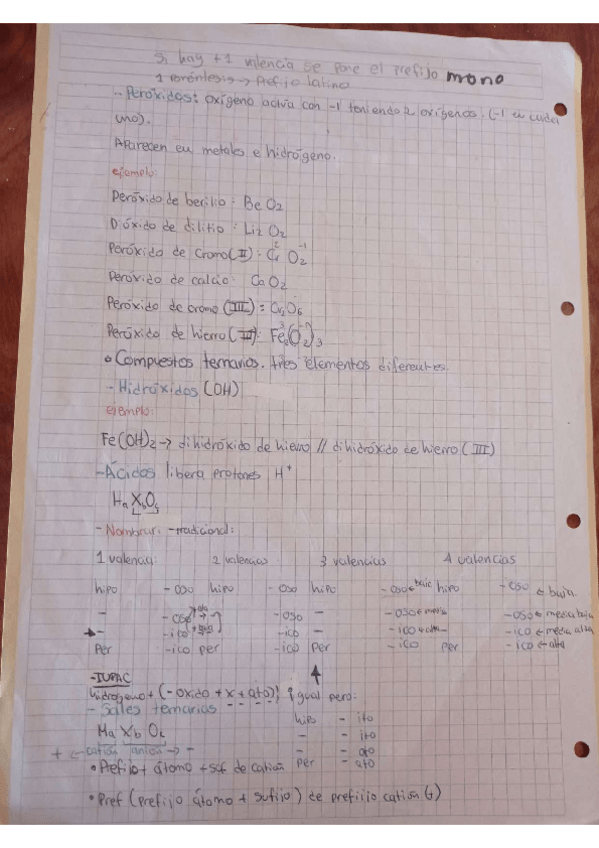 Si hay +1 valencia se pone el prefijo mono
1 paréntesis → Prefijo latino
- Peróxidos: oxígeno actúa con -1 teniendo 2 oxígenos. (-1 en cada
uno).
Aparecen en metales e hidrógeno.
ejemplo:
Peróxido de berilio: BeO2
Dióxido de dilitio: Li2O2
Peróxido de Cromo (II): Cr O2
Peróxido de calcio: CaO2
Peróxido de cromo (III):
Peróxido de hierro (III): Fe2(O2)3
• Compuestos ternarios. tres elementos diferentes.
- Hidróxidos (OH)
ejemplo:
Fe(OH)2 → dihidróxido de hierro // dihidróxido de hierro (III)
- Ácidos libera protones H+
Ha Xb Oc
- Nombrar: -tradicional:
1 valencia: 2 valencias 3 valencias 4 valencias
hipo -oso hipo -oso hipo -oso ← baja hipo -oso ← baja
- -oso -oso - -oso ← media -oso ← media baja
- -ico -ico - -ico ← alta -ico ← media alta
Per -ico per -ico per -ico per -ico ← alta
- IUPAC
hidrogeno + (-oxido + x + ato) igual pero:
- Sales ternarias hipo - ito
Ma Xb Oc - - ito
+ ← catión anión → - - - ato
• Prefijo + átomo + suf de catión per - ato
• Pref (prefijo átomo + sufijo) de prefijo catión ( )